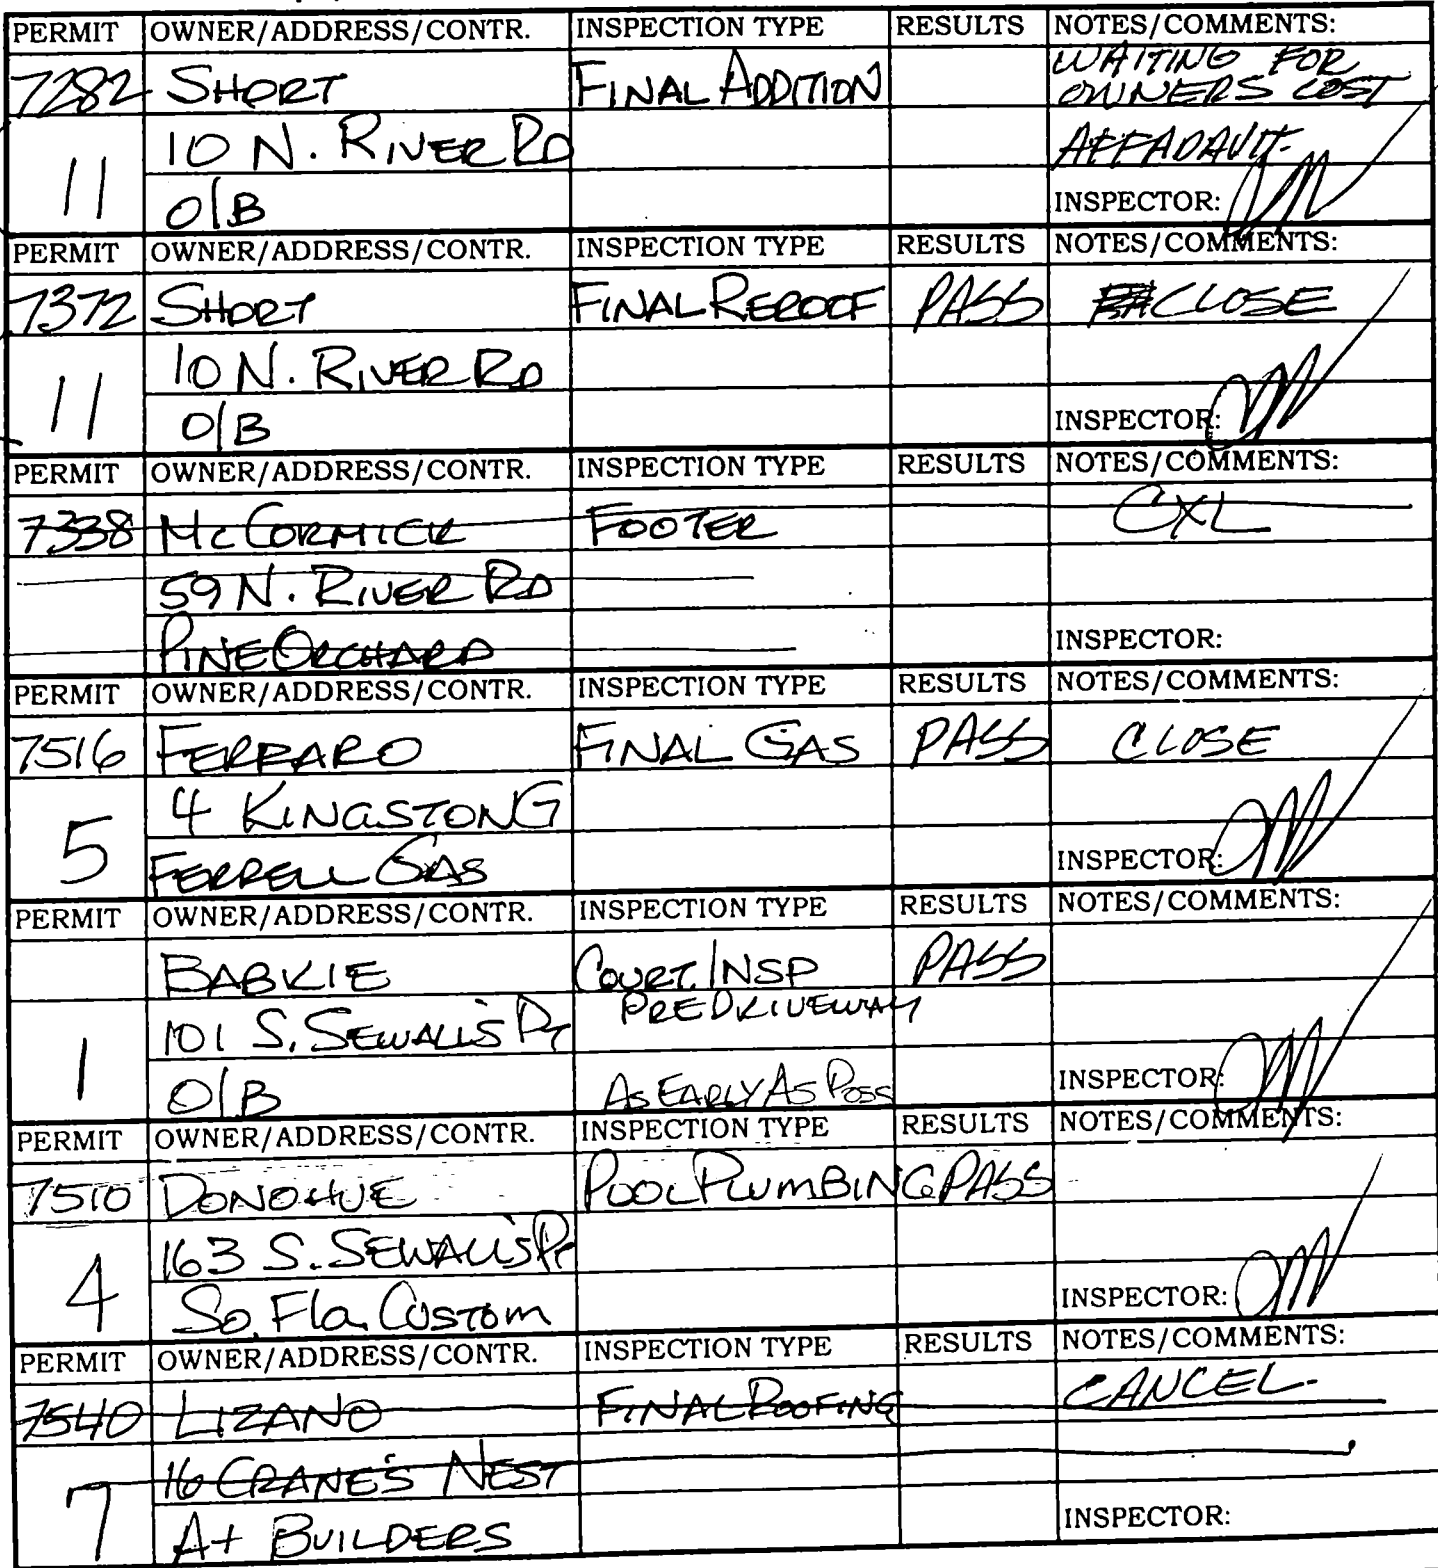 PERMIT OWNER/ADDRESS/CONTR. INSPECTION TYPE RESULTS NOTES/COMMENTS:
7282 SHORT FINAL ADDITION WAITING FOR
OWNERS COST
10 N. RIVER RD AFFADAVIT
11 O/B INSPECTOR:
PERMIT OWNER/ADDRESS/CONTR. INSPECTION TYPE RESULTS NOTES/COMMENTS:
7372 SHORT FINAL REROOF PASS CLOSE
10 N. RIVER RD
11 O/B INSPECTOR:
PERMIT OWNER/ADDRESS/CONTR. INSPECTION TYPE RESULTS NOTES/COMMENTS:
7338 McCORMICK FOOTER CXL
59 N. RIVER RD
PINE ORCHARD INSPECTOR:
PERMIT OWNER/ADDRESS/CONTR. INSPECTION TYPE RESULTS NOTES/COMMENTS:
7516 FERRARO FINAL GAS PASS CLOSE
4 KINGSTON
5 FERRELL GAS INSPECTOR:
PERMIT OWNER/ADDRESS/CONTR. INSPECTION TYPE RESULTS NOTES/COMMENTS:
BABKIE COURT. INSP PASS
101 S. SEWALL'S PT PRE DRIVEWAY
1 O/B AS EARLY AS POSS INSPECTOR:
PERMIT OWNER/ADDRESS/CONTR. INSPECTION TYPE RESULTS NOTES/COMMENTS:
7510 DONOHUE POOL PLUMBING PASS
163 S. SEWALL'S PT
4 So. Fla. CUSTOM INSPECTOR:
PERMIT OWNER/ADDRESS/CONTR. INSPECTION TYPE RESULTS NOTES/COMMENTS:
7540 LIZANO FINAL ROOFING CANCEL
16 CRANE'S NEST
7 A+ BUILDERS INSPECTOR: